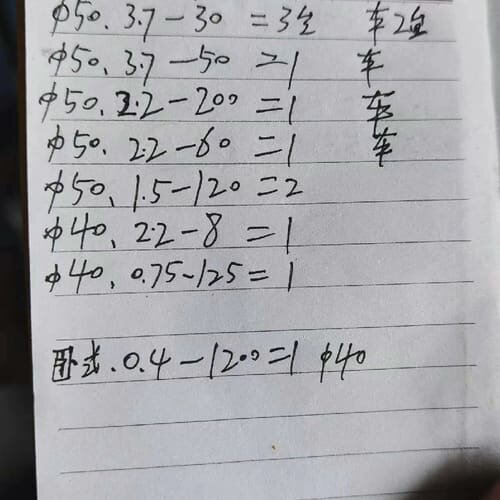 φ50. 3.7-30 =3台 车2台
φ50. 3.7-50 =1 车
φ50. 2.2-200 =1 车
φ50. 2.2-60 =1 车
φ50. 1.5-120=2
φ40. 2.2-8 =1
φ40. 0.75-125=1
卧式.0.4-1200=1 φ40